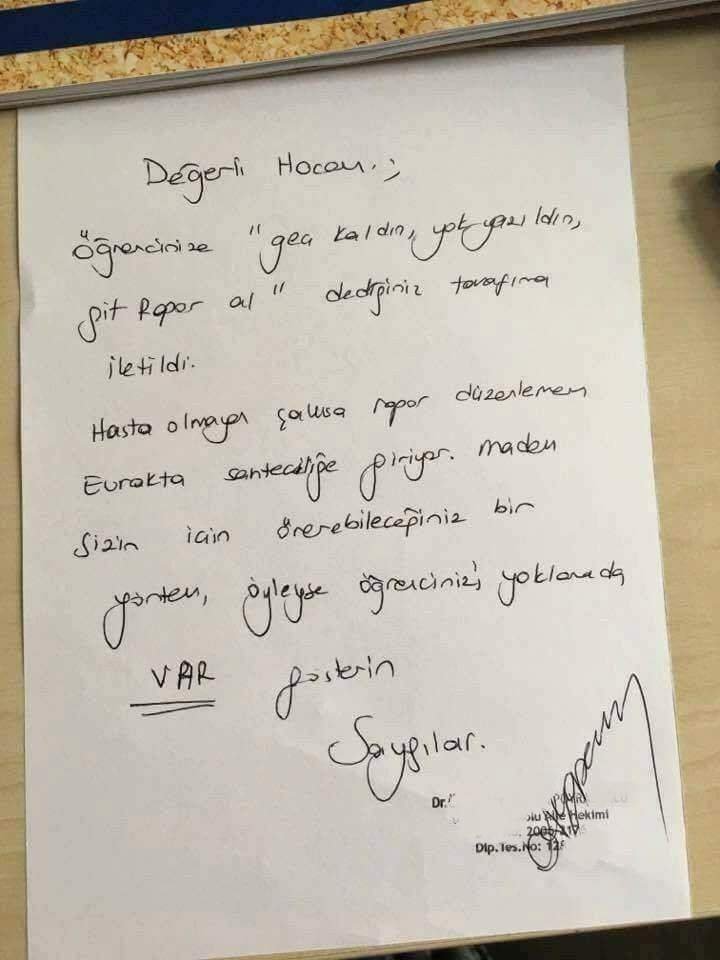 Değerli Hocam.;
Öğrencinize "geç kaldın, yok yazıldın,
git Rapor al" dediğiniz tarafıma
iletildi.
Hasta olmayan şahısa rapor düzenlemem
Evrakta sahteciliğe giriyor. Madem
Sizin için önerebileceğiniz bir
yöntem, öyleyse öğrencinizi yoklamada
VAR gösterin
Saygılar.
Dr.
Aile Hekimi
Dip.Tes.No: 128